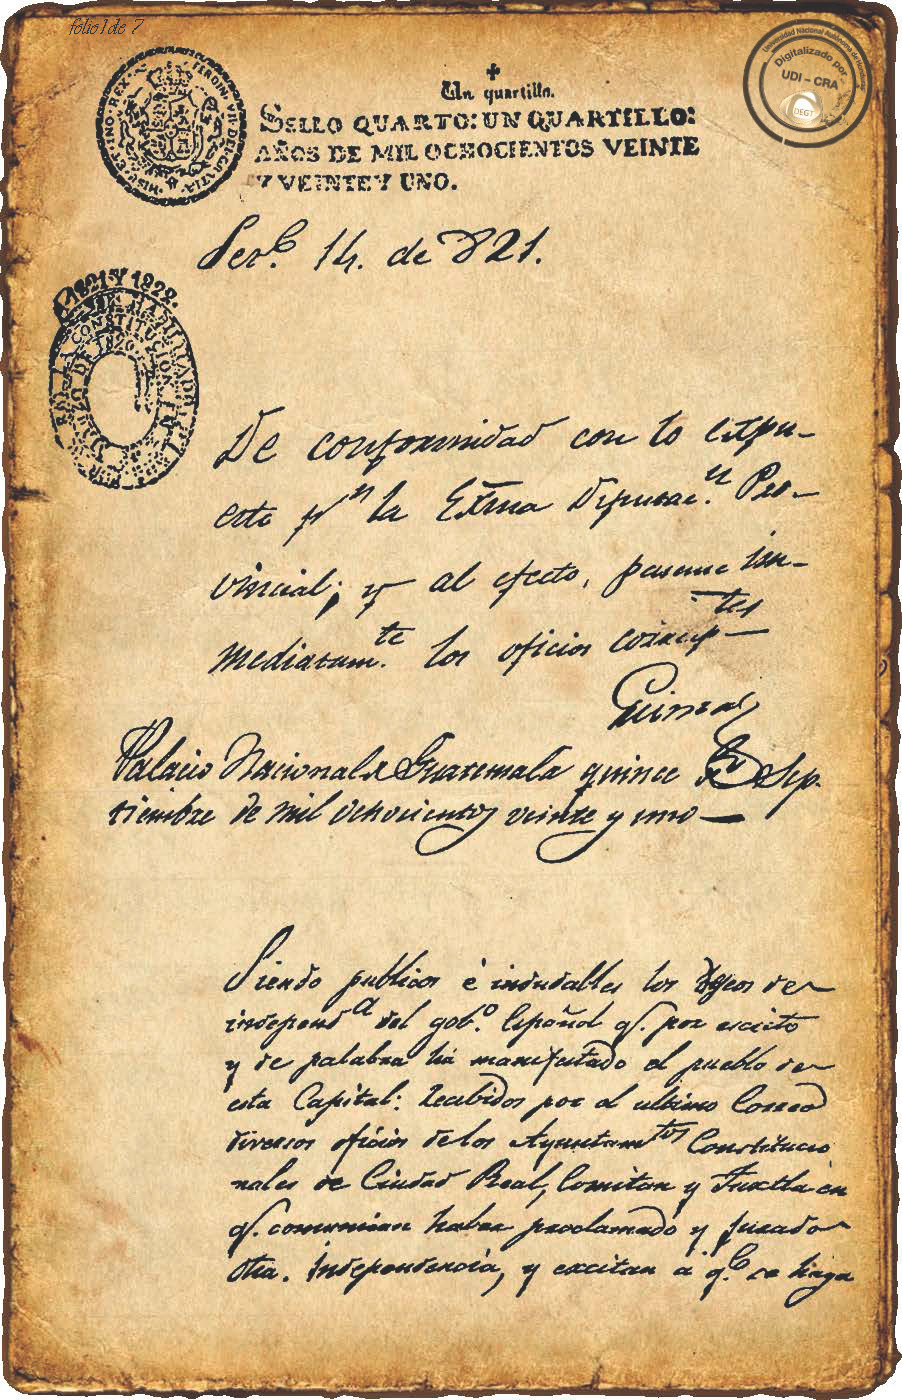 folio 1 de 7
Universidad Nacional Autónoma de Honduras
Digitalizado por
UDI - CRA
DEGT
FERDIN. VII. DEI GRATIA
HISP. ET IND. REX
Un quartillo.
SELLO QUARTO: UN QUARTILLO:
AÑOS DE MIL OCHOCIENTOS VEINTE
Y VEINTE Y UNO.
14. de 821.
1821 Y 1822.
HABILITADO
CONSTITUCION
DE 1820
De conformidad con lo expu-
esto pʳ la Exma Diputacⁿ. Pro-
vincial; y al efecto, pasense in-
mediatamᵗᵉ. los oficios corresp ᵗᵉˢ
Palacio Nacional de Guatemala quince de Sep-
tiembre de mil ochocientos veinte y uno —
Siendo publicos é indudables los deseos de
independᵃ del gobᵒ. Español q. por escrito
y de palabra há manifestado el pueblo de
esta Capital: Recibidos por el ultimo Correo
diversos oficios de los Ayuntamᵗᵒˢ Constitucio
nales de Ciudad Real, Comitan y Tuxtla en
q. comunican haber proclamado y jurado
dha. Independencia, y excitan á qᵉ. se haga